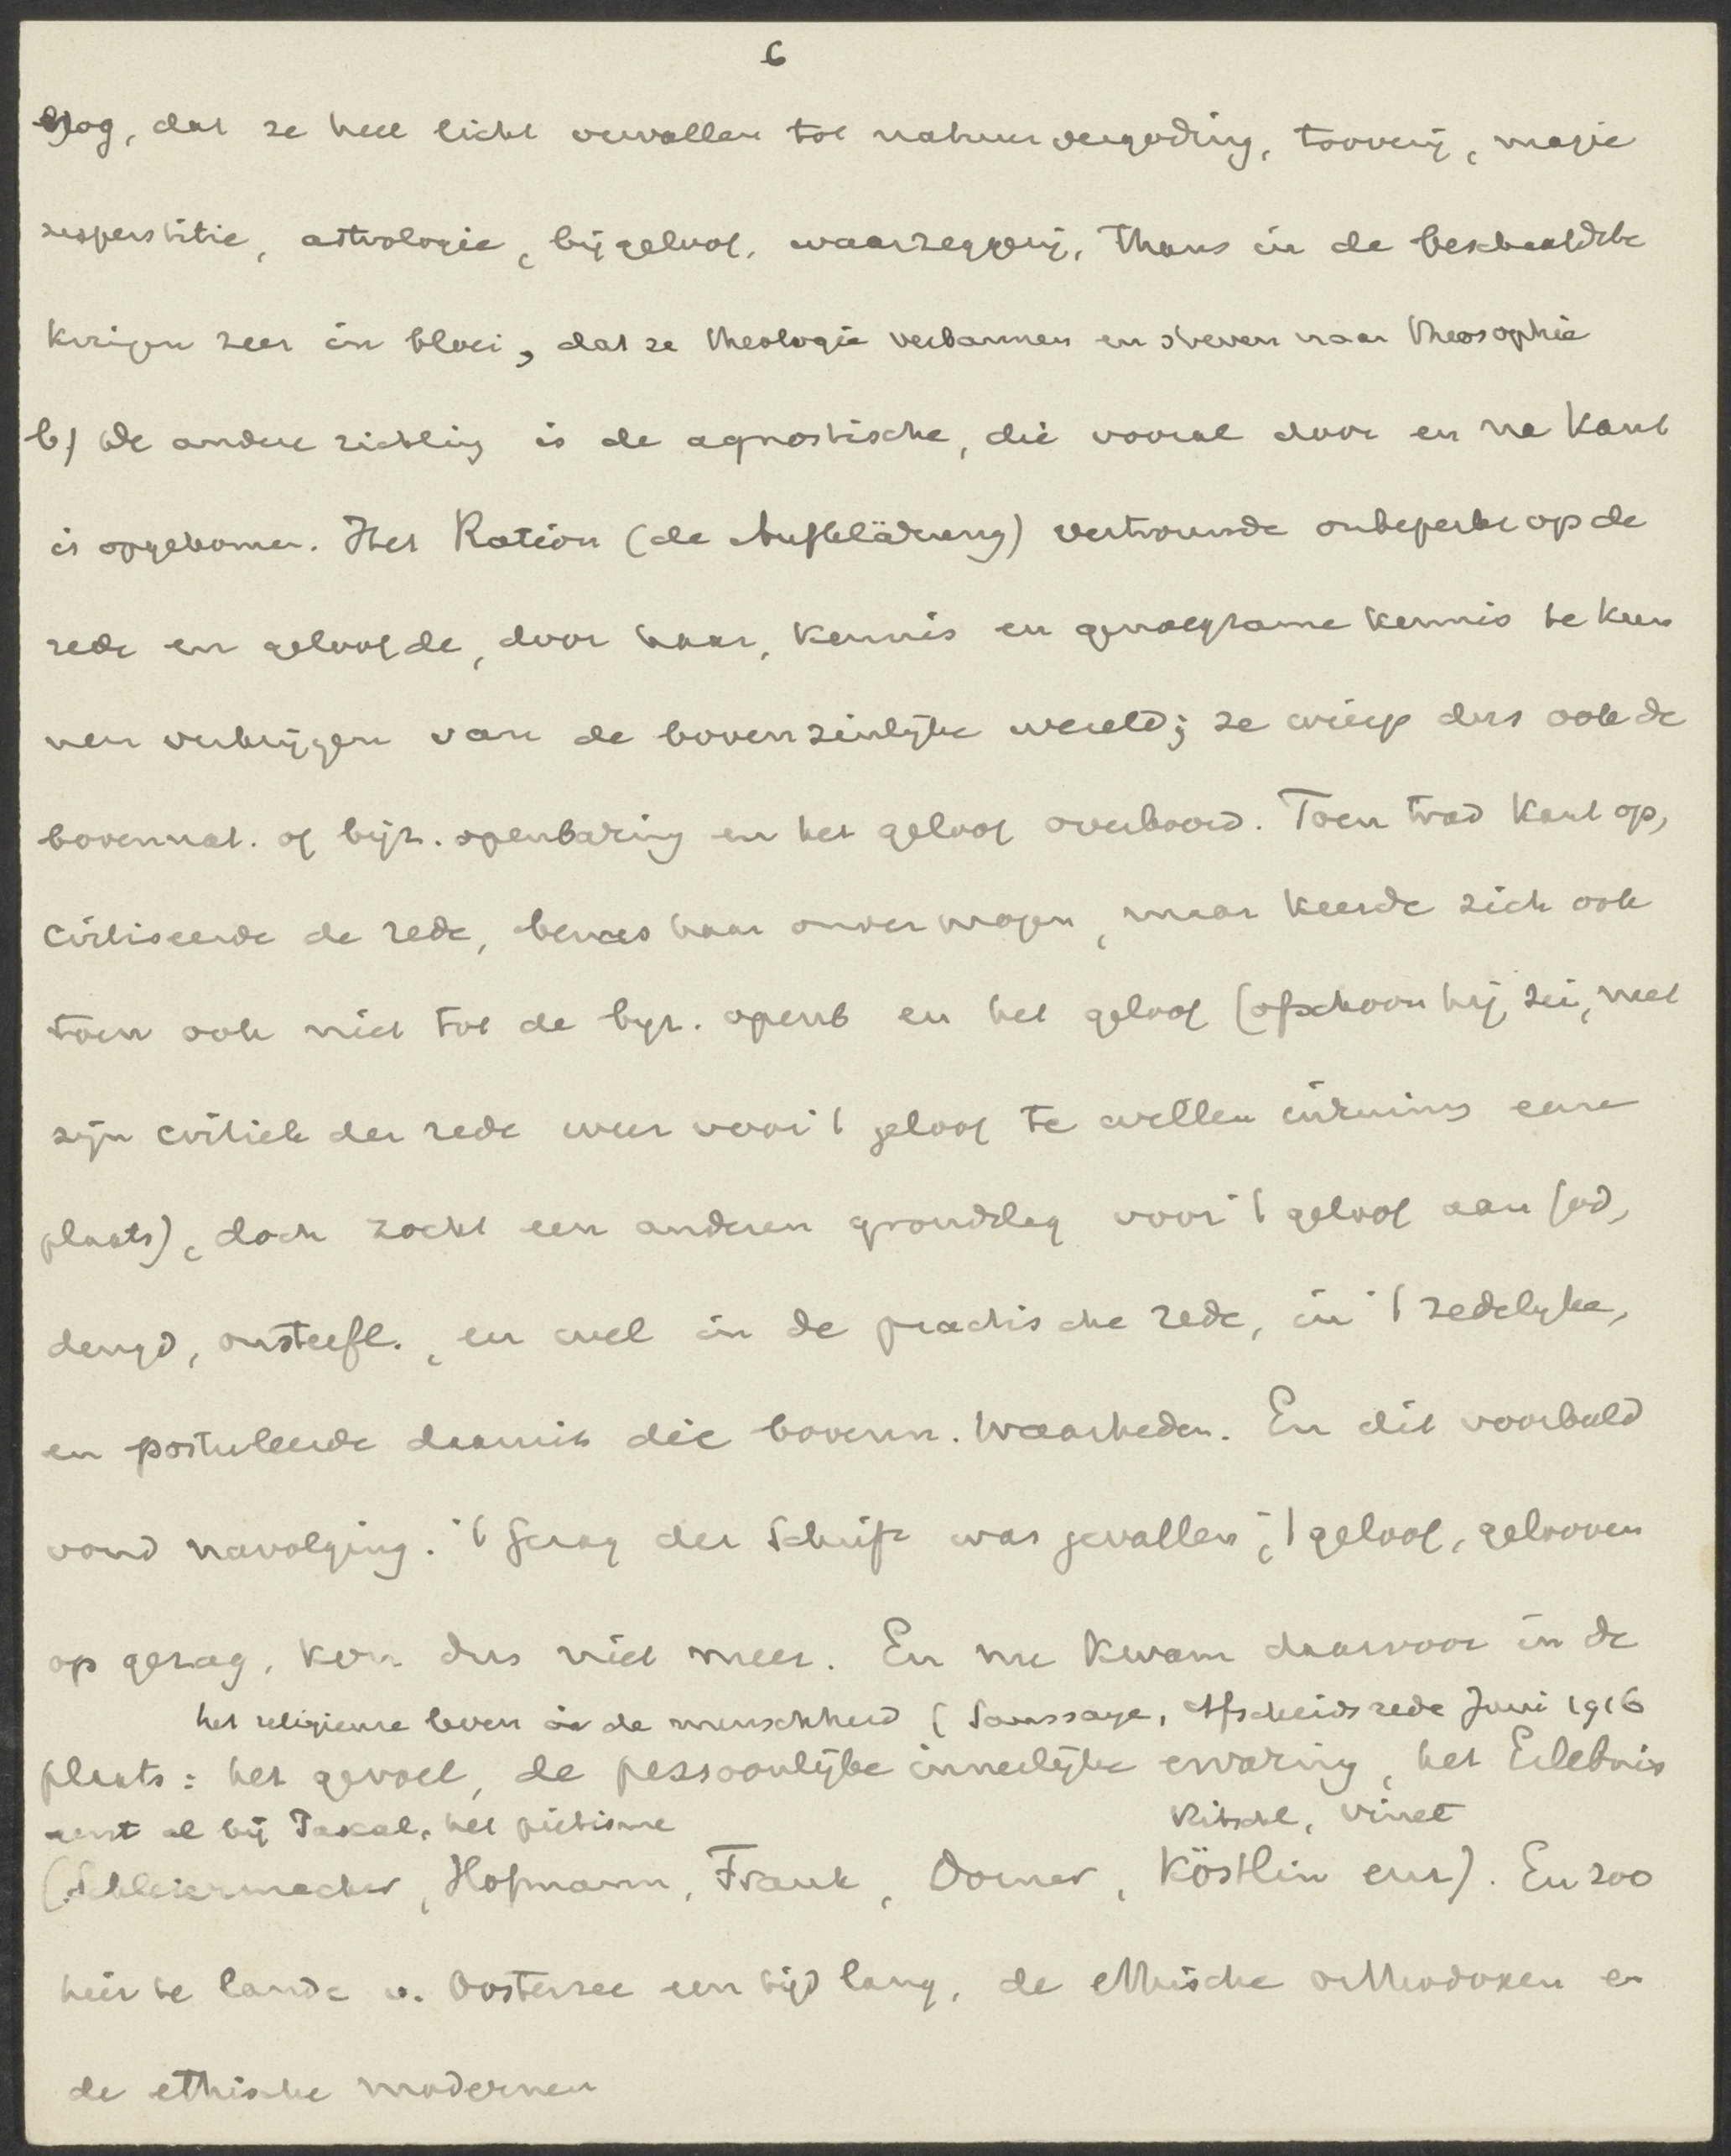 6
oog, dat ze heel licht vervallen tot natuurvergoding, toovery, magie
superstitie, astrologie, bijgeloof, waarzeggerij, thans in de beschaafdste
kringen zeer in bloei, dat ze theologie verbannen en streven naar theosophie
b) De andere richting is de agnostische, die vooral door en na Kant
is opgekomen. Het Ration (de Aufklärung) vertrouwde onbeperkt op de
rede en geloofde, door haar, kennis en genoegzame kennis te kun
nen verkrijgen van de bovenzinlijke wereld; ze wierp dus ook de
bovennat. of bijz. openbaring en het geloof overboord. Toen trad Kant op,
critiseerde de rede, bewees haar onvermogen, maar keerde zich ook
toen ook niet tot de byz. openb en het geloof (ofschoon hij zei, met
zijn critiek der rede weer voor 't geloof te willen inruimen eene
plaats), doch zocht een anderen grondslag voor 't geloof aan God,
deugd, onsterfl., en wel in de practische rede, in 't zedelyke,
en postuleerde daaruit die bovenn. waarheden. En dit voorbeeld
vond navolging. 't Gezag der Schrift was gevallen, 't geloof, gelooven
op gezag, kon dus niet meer. En nu kwam daarvoor in de
het religieuse leven in de menschheid (Saussaye, Afscheidsrede Juni 1916
plaats: het gevoel, de persoonlijke innerlijke ervaring, het Erlebnis
eerst al bij Pascal, het piëtisme
Ritschl, Vinet
(Schleiermacher, Hofmann, Frank, Dorner, Köstlin enz). En zoo
hier te lande v. Oosterzee een tijd lang, de ethische orthodoxen en
de ethische modernen